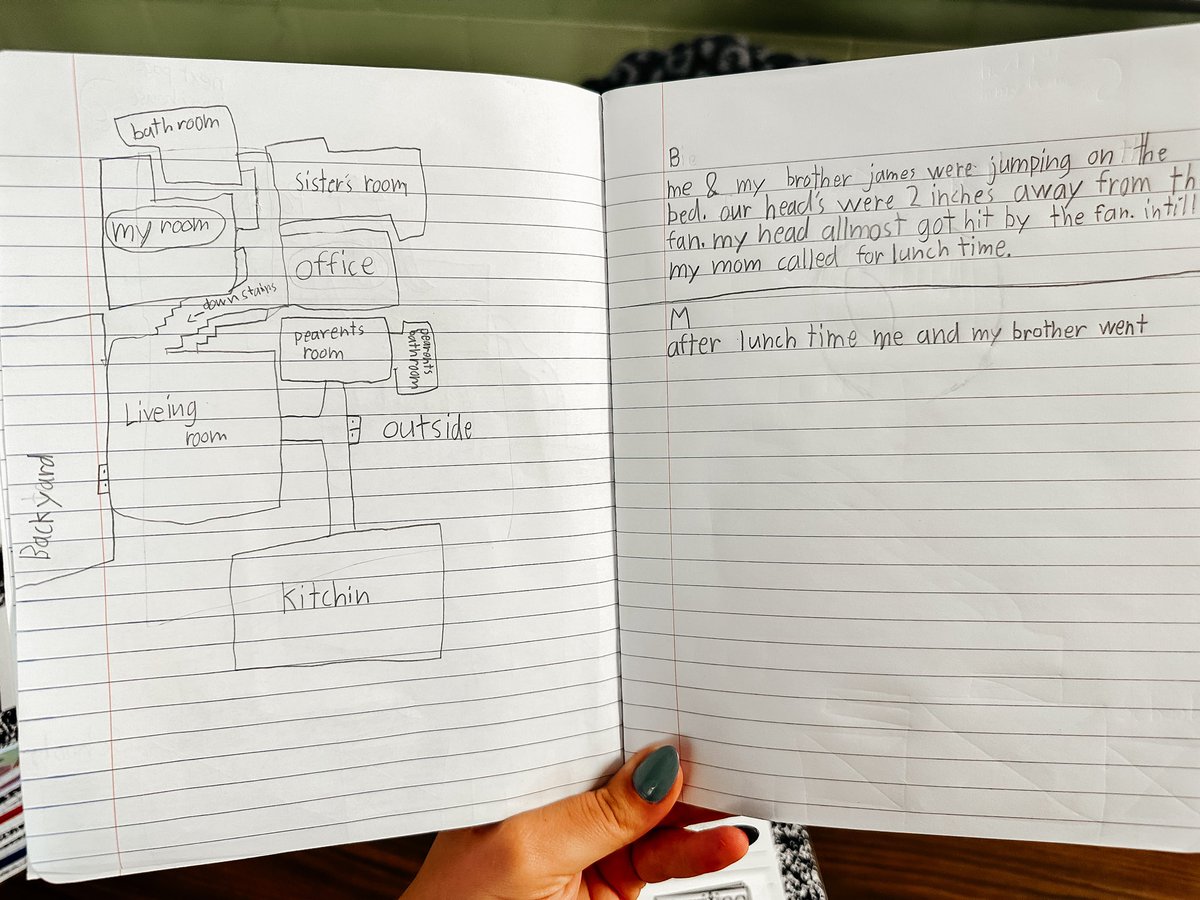 bathroom
sister's room
my room
office
down stairs
pearents
room
pearents
bathroom
Liveing
room
outside
Backyard
Kitchin
B
me & my brother james were jumping on the
bed. our head's were 2 inches away from th
fan. my head allmost got hit by the fan. intill
my mom called for lunch time.
M
after lunch time me and my brother went